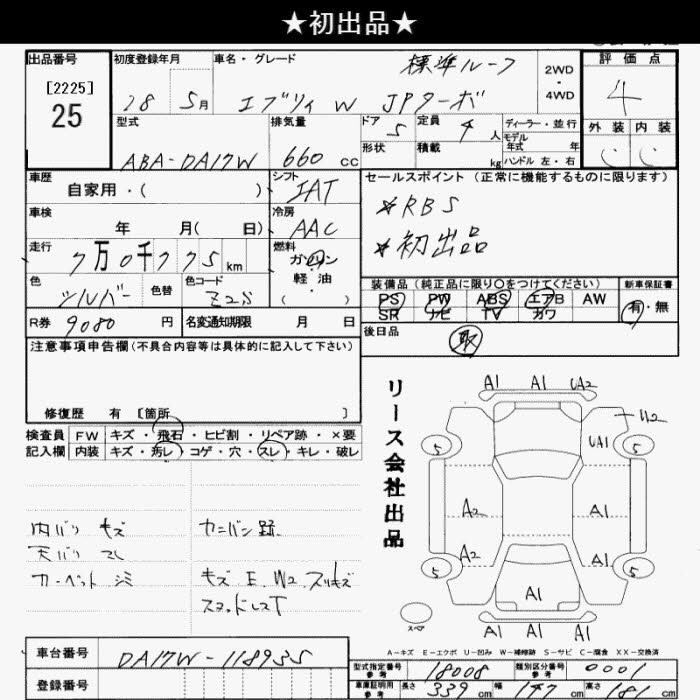 ★初出品★
出品番号 初度登録年月 車名・グレード 標準ルーフ 2WD・4WD 評価点
[2225] 25 28 5月 エブリィ W JPターボ 4
型式 排気量 ドア 5 定員 4人 ディーラー・並行 外装 内装
ABA-DA17W 660 CC 形状 積載 kg モデル年式 年 ハンドル 左・右
車歴 自家用・( ) シフト IAT セールスポイント(正常に機能するものに限ります)
車検 年 月( 日) 冷房 AAC ※RBS
走行 7万0千775km 燃料 ガソリン 軽油 ( ・ ) ※初出品
色 シルバー 色替 色コード Z2S 装備品(純正品に限り○をつけてください) 新車保証書
PS PW ABS エアB AW 有・無
SR ナビ TV カワ
R券 9080円 名変通知期限 月 日 後日品 取
注意事項申告欄(不具合内容等は具体的に記入して下さい)
修復歴 有 [箇所 ]
検査員 FW キズ・飛石・ヒビ割・リペア跡・×要
記入欄 内装 キズ・汚レ・コゲ・穴・スレ・キレ・破レ
リース会社出品
A1 A1 UA2
U2
5 UA1 5
A2 A1
A2 A1
5 A1 5
A1
A1 A1 A1
スペア
内バリ キズ カニバン跡
天バリ スレ
カーペット シミ キズ E W2 スリキズ
A－キズ E－エクボ U－凹み W－補修跡 S－サビ C－腐食 XX－交換済
車台番号 DA17W-118935 型式指定番号 参考 18008 類別区分番号 参考 0001
登録番号 車庫証明用 参考 長さ 339cm 幅 147cm 高さ 181cm